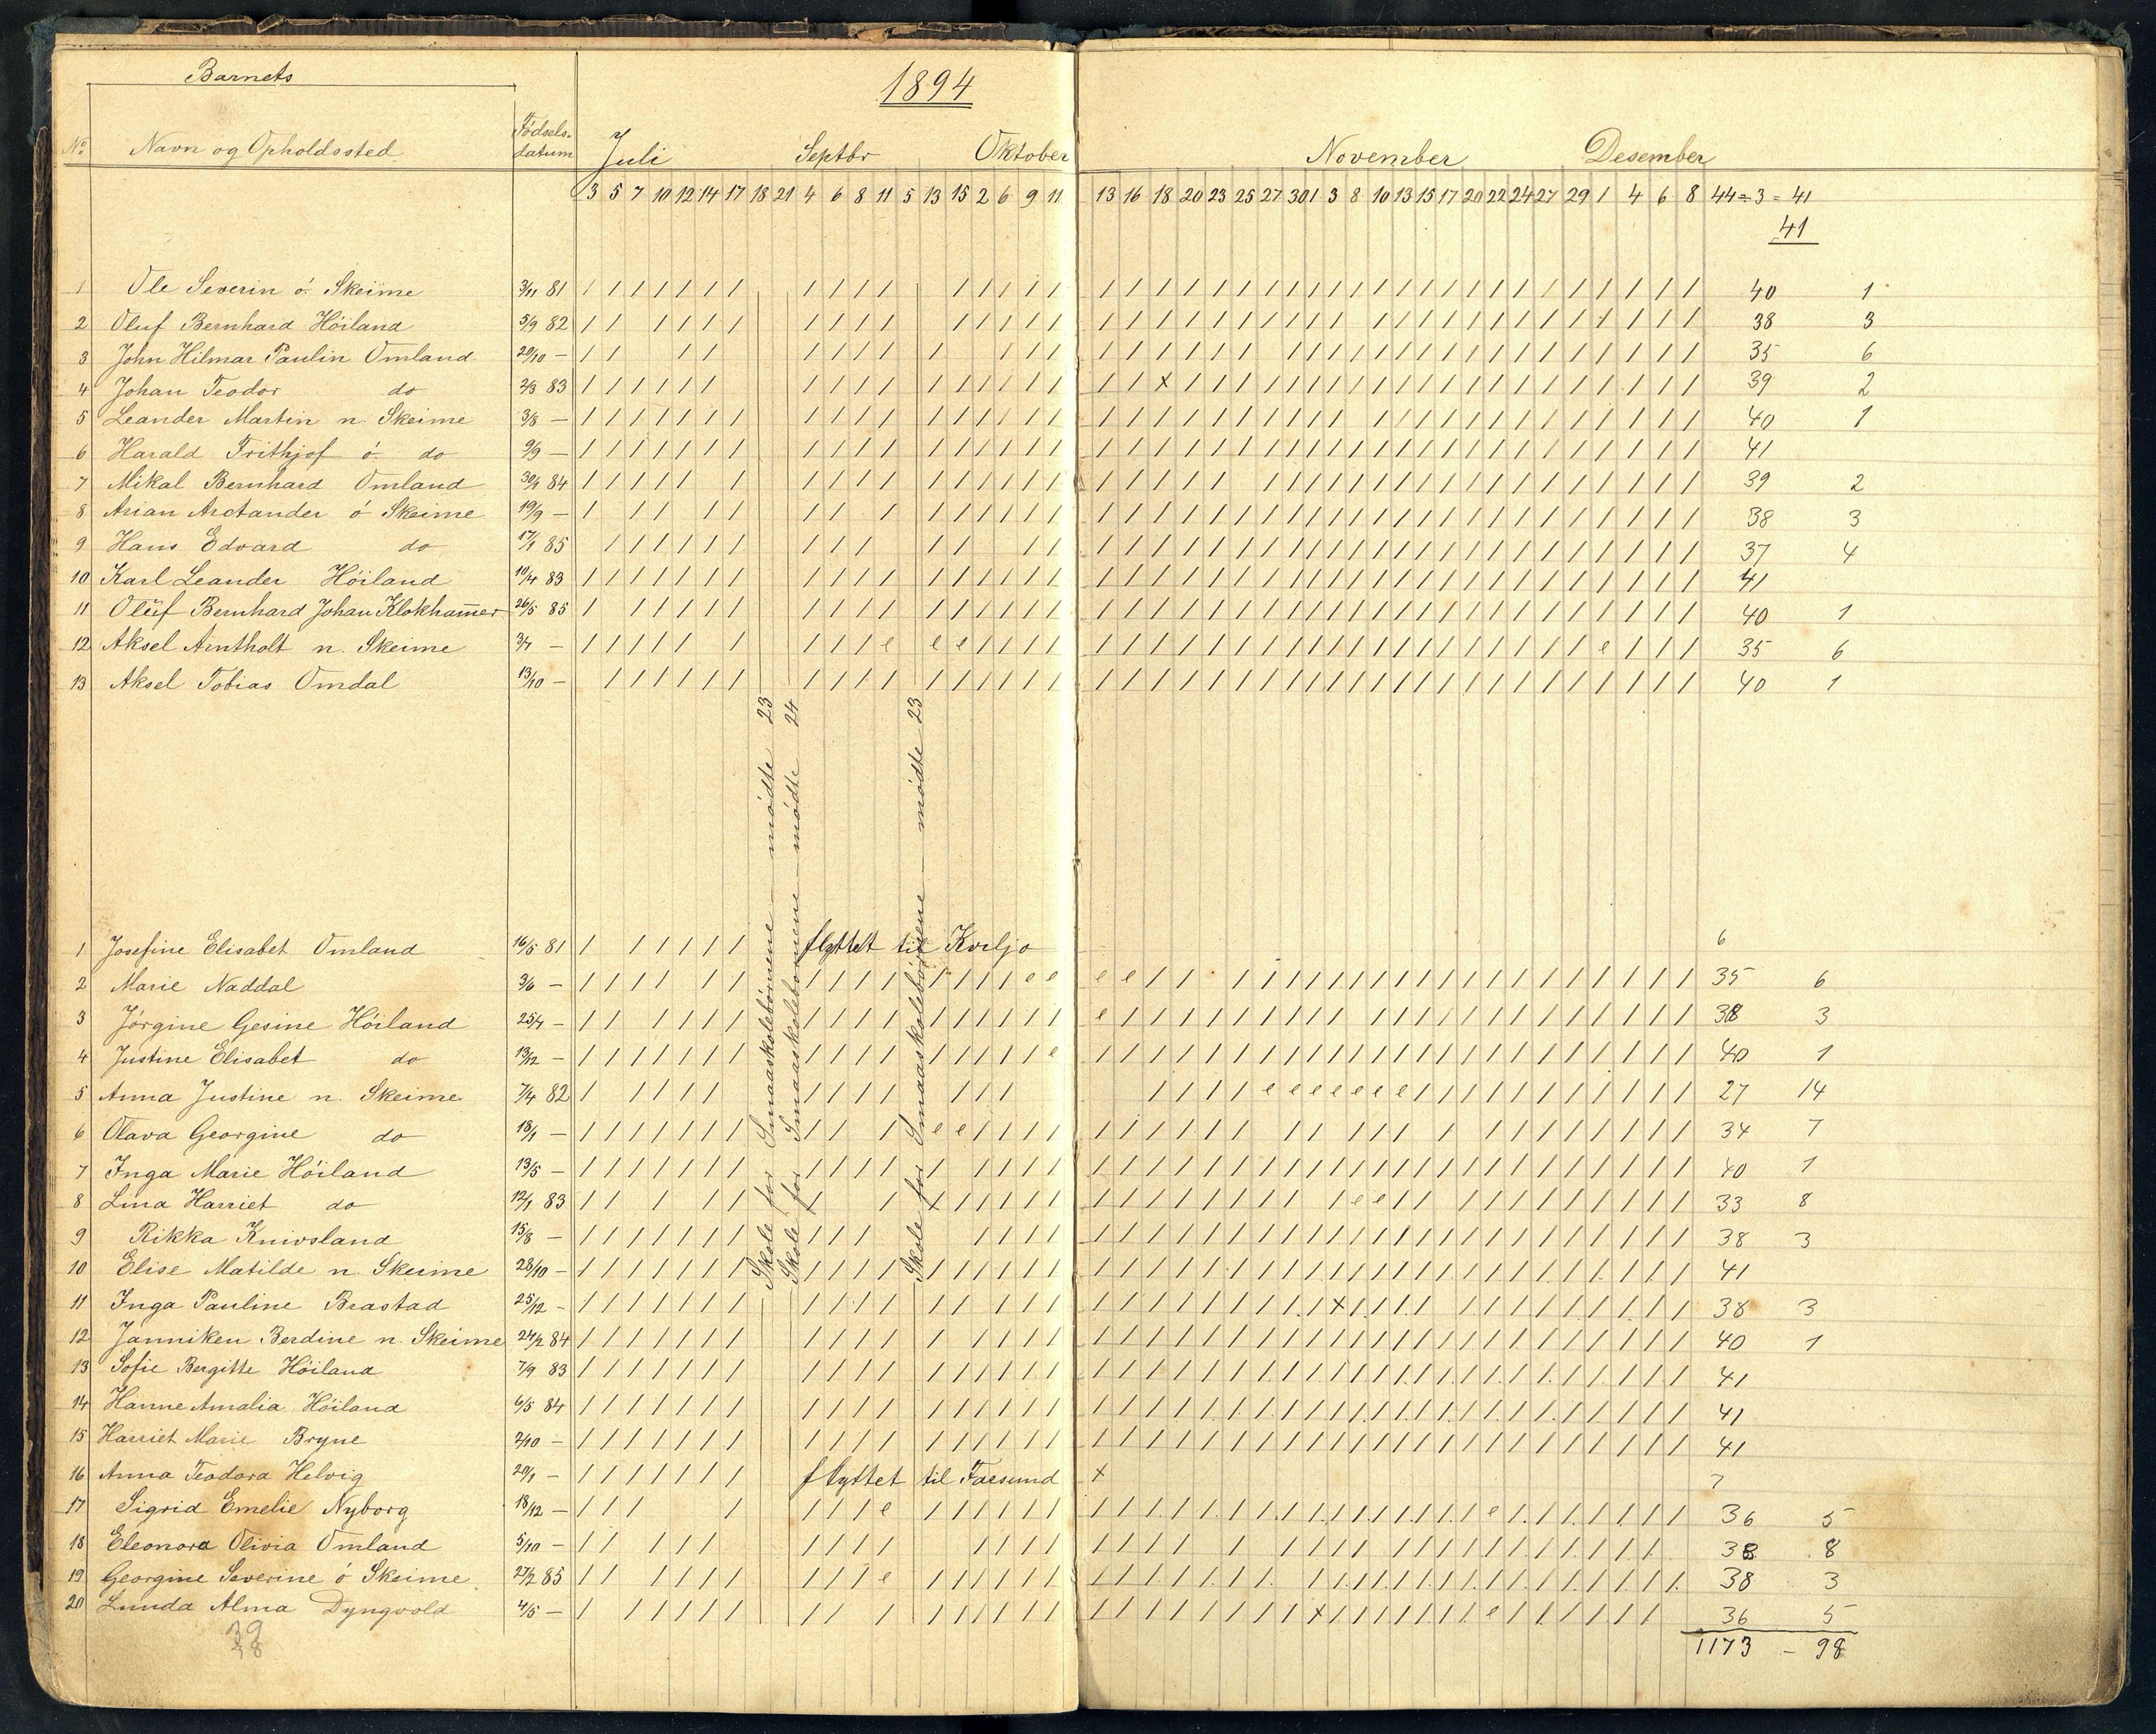 Barnets
1894
No Navn og Opholdssted Födsels-datum Juli Septbr Oktober November Desember
3 5 7 10 12 14 17 18 21 4 6 8 11 5 13 15 2 6 9 11 13 16 18 20 23 25 27 30 1 3 8 10 13 15 17 20 22 24 27 29 1 4 6 8 44÷3 = 41
41
1 Ole Severin ö. Skeime 3/11 81 40 1
2 Oluf Bernhard Höiland 5/9 82 38 3
3 John Hilmar Paulin Omland 20/10 — 35 6
4 Johan Teodor do 2/3 83 39 2
5 Leander Martin n. Skeime 3/8 — 40 1
6 Harald Frithjof ö. do 9/9 — 41
7 Mikal Bernhard Omland 30/1 84 39 2
8 Arian Arctander ö Skeime 19/9 — 38 3
9 Hans Edvard do 17/1 85 37 4
10 Karl Leander Höiland 10/4 83 41
11 Oluf Bernhard Johan Klokham̅er 26/5 85 40 1
12 Aksel Arntholt n. Skeime 3/4 — 35 6
13 Aksel Tobias Omdal 13/10 — 40 1
Skole for Smaaskolebörnene — mödte 23
Skole for Smaaskolebörnene — mödte 24
Skole for Smaaskolebörnene — mödte 23
1 Josefine Elisabet Omland 16/5 81 flyttet til Kviljo 6
2 Marie Naddal 3/6 — 35 6
3 Jörgine Gesine Höiland 25/7 — 38 3
4 Justine Elisabet do 13/12 — 40 1
5 Anna Justine n. Skeime 7/4 82 27 14
6 Olava Georgine do 18/1 — 34 7
7 Inga Marie Höiland 13/5 — 40 1
8 Lina Harriet do 12/1 83 33 8
9 Rikka Knivsland 15/8 — 38 3
10 Elise Matilde n. Skeime 28/10 — 41
11 Inga Pauline Brastad 25/12 - 38 3
12 Janniken Berdine n. Skeime 24/2 84 40 1
13 Sofie Bergitte Höiland 7/9 83 41
14 Hanne Amalia Höiland 6/5 84 41
15 Harriet Marie Bryne 2/10 — 41
16 Anna Teodora Helvig 20/1 — flyttet til Farsund x 7
17 Sigrid Emelie Nyborg 18/12 — 36 5
18 Eleonora Olivia Omland 5/10 — 33 8
19 Georgine Severine ö Skeime 27/2 85 38 3
20 Lunda Alma Dyngvold 4/5 — 36 5
1173 - 98
39
38